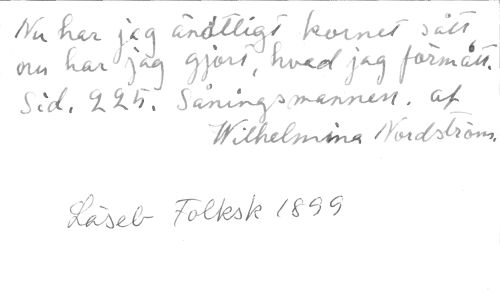 Nu har jag ändtligt kornet sått
nu har jag gjort, hvad jag förmått.
Sid. 225. Såningsmannen. af
Wilhelmina Nordström.
Läseb Folksk 1899